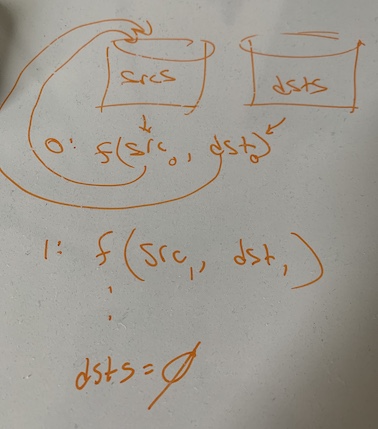 srcs dsts
0: f(src₀, dst₀)
1: f(src₁, dst₁)
:
dsts = ∅